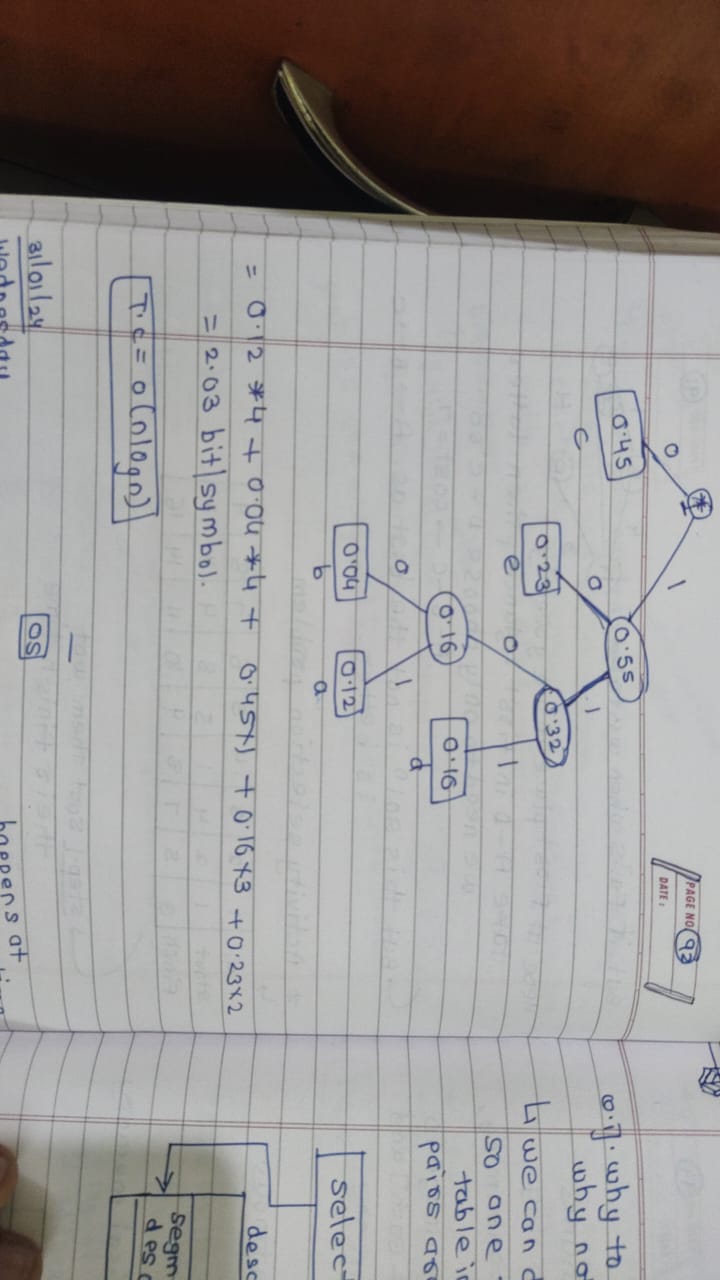 PAGE NO 93
DATE:
1
0 1
0.45 0.55
c 0 1
0.23 0.32
e 0 1
0.16 0.16
d
0 1
0.04 0.12
b a
= 0.12 *4 + 0.04 *4 + 0.45×1 + 0.16×3 + 0.23×2
= 2.03 bit/symbol.
T.C = O(nlogn)
OS
31/01/24
Wednesday
happens at
why to
why no
↳ we can
so one
table in
pairs are
select
desc
segm
desc